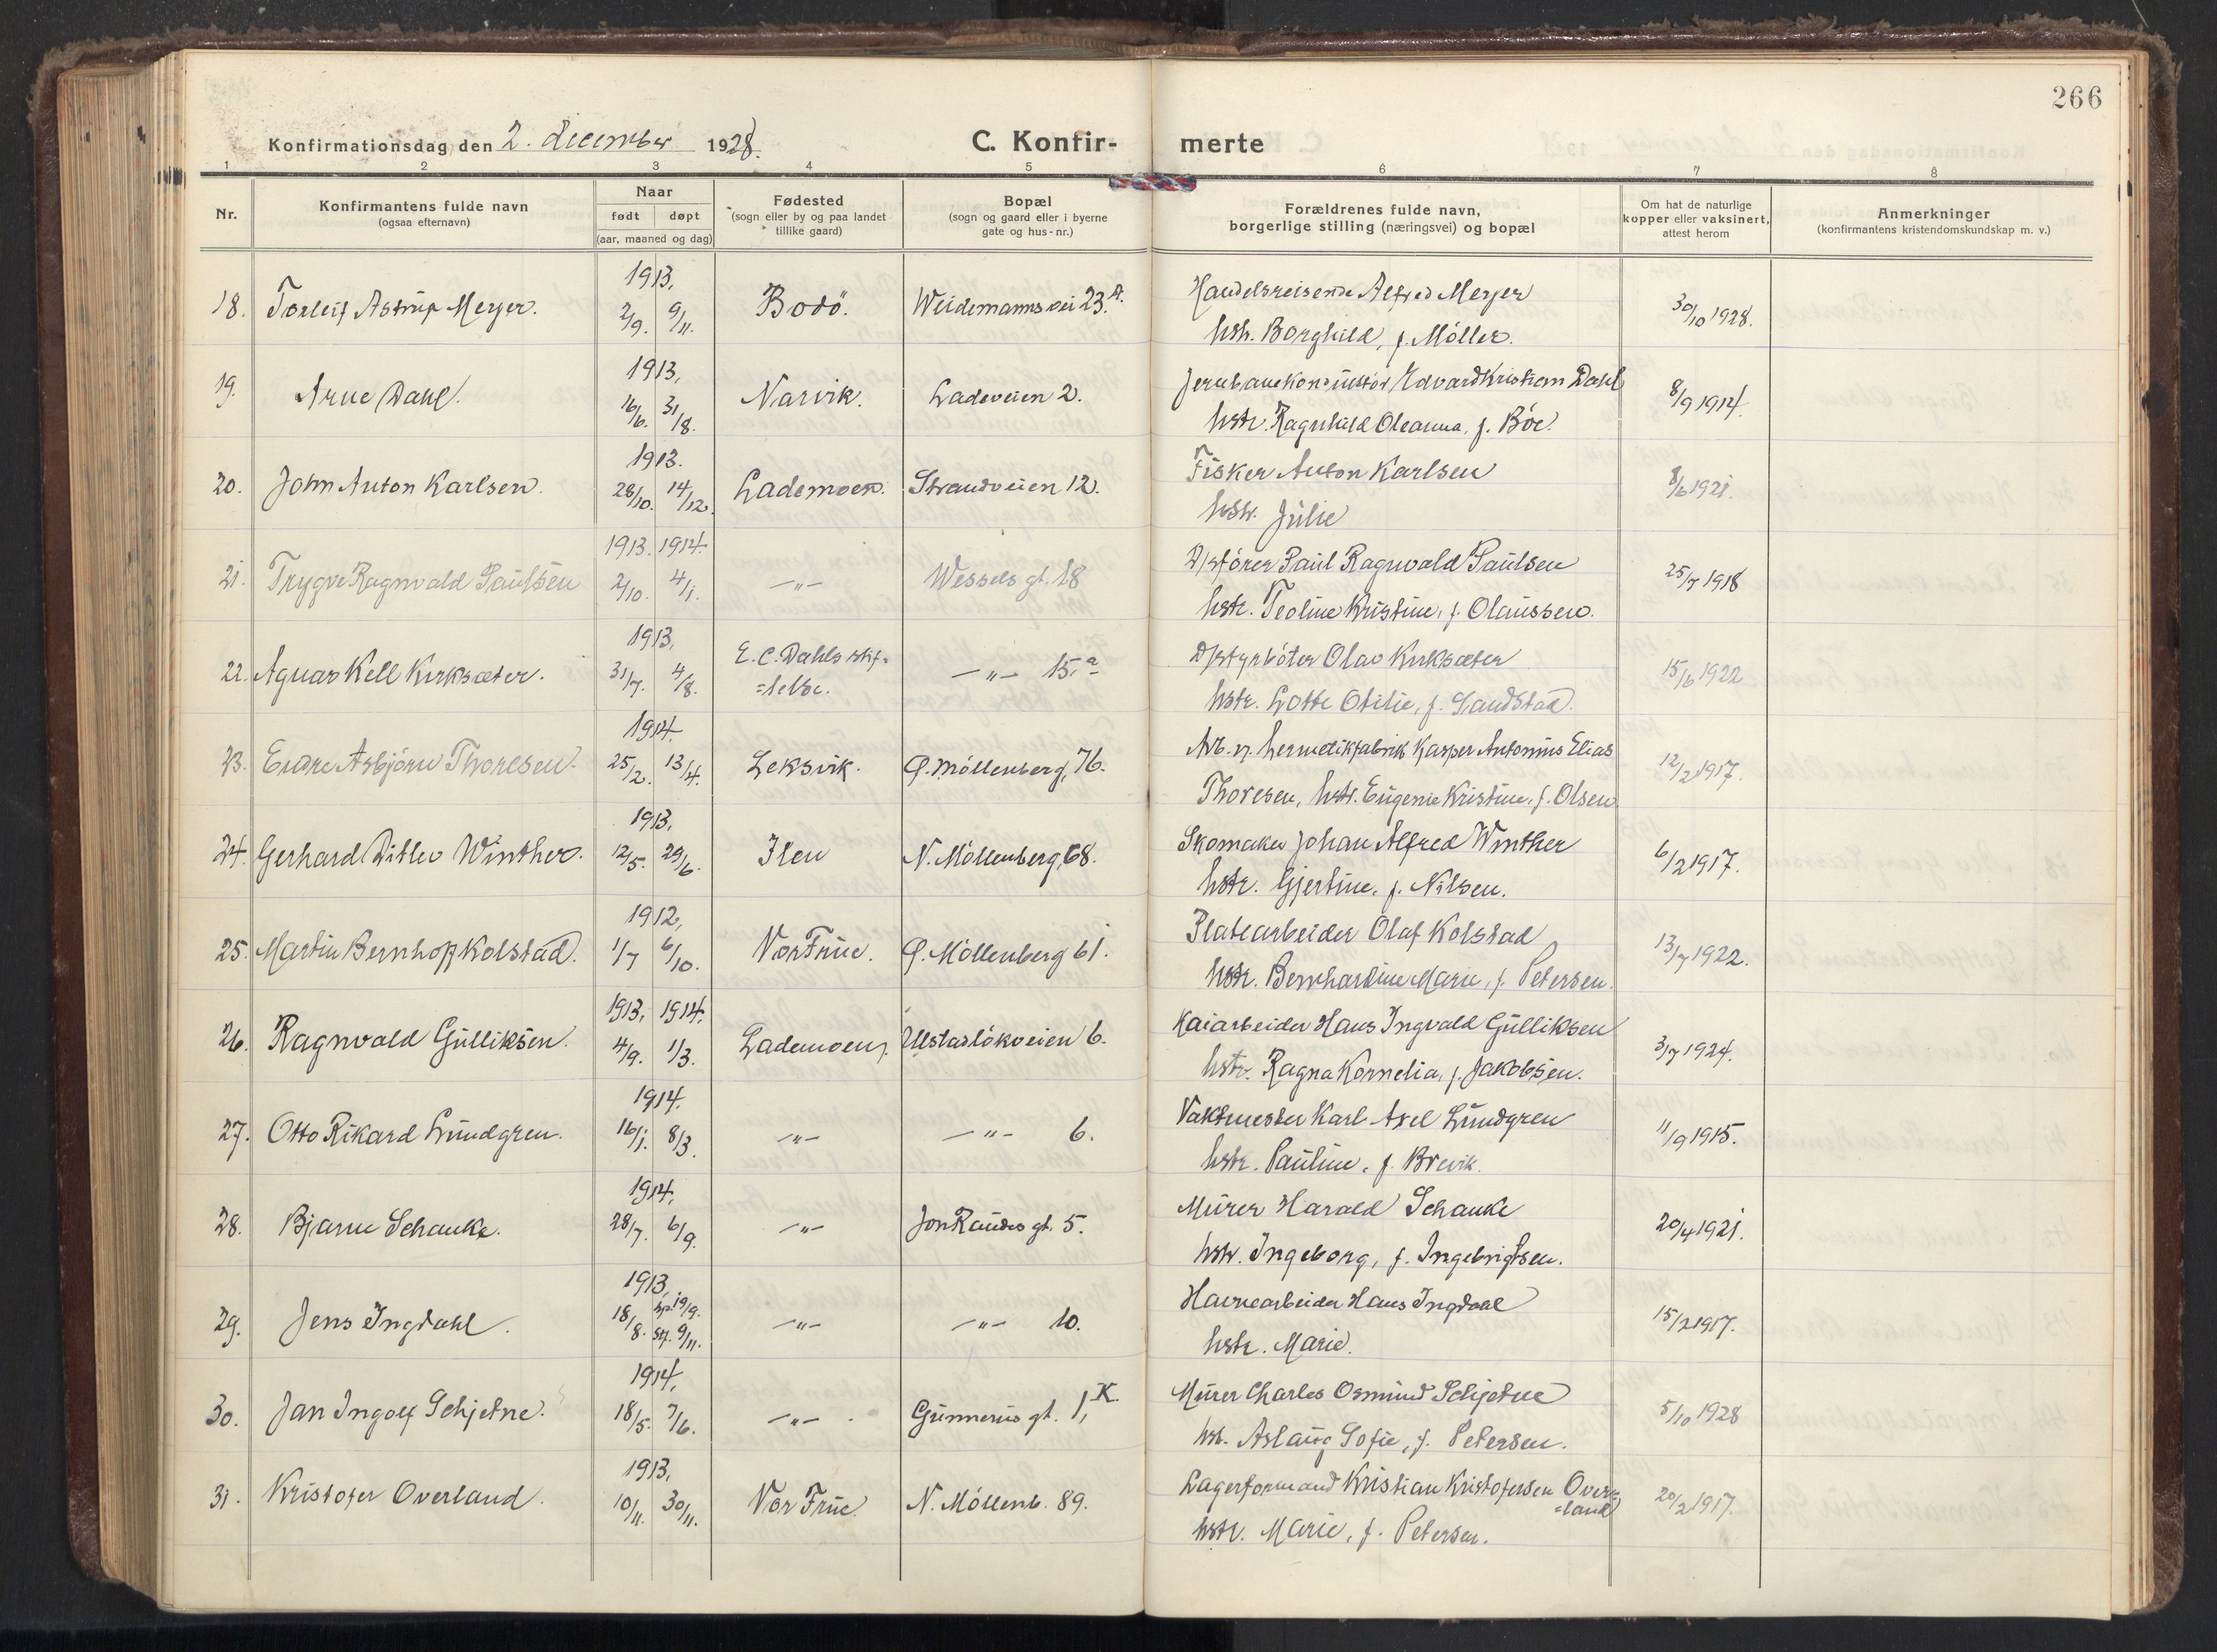 266
Konfirmationsdag den 2. december 1928.
C. Konfir- merte
1 2 3 4 5 6 7 8
Nr.
Konfirmantens fulde navn
(ogsaa efternavn)
Naar
født døpt
(aar, maaned og dag)
Fødested
(sogn eller by og paa landet
tillike gaard)
Bopæl
(sogn og gaard eller i byerne
gate og hus-nr.)
Forældrenes fulde navn,
borgerlige stilling (næringsvei) og bopæl
Om hat de naturlige
kopper eller vaksinert,
attest herom
Anmerkninger
(konfirmantens kristendomskundskap m. v.)
1913,
18. Torleif Astrup Meyer. 2/9. 9/11. Bodö. Weidemannsvei 23.A. Handelsreisende Alfred Meyer 30/10 1928.
hstr. Borghild, f. Möller.
1913,
19. Arne Dahl. 16/6. 31/8. Narvik. Ladeveien 2. Jernbanekonduktör Edvard Kristian Dahl 8/9 1914.
hstr. Ragnhild Oleanna, f. Böe.
1913.
20. John Anton Karlsen. 28/10. 14/12. Lademoen. Strandveien 12. Fisker Anton Karlsen 8/6 1921.
hstr. Julie
1913. 1914.
21. Trygve Ragnvald Paulsen 2/10. 4/1. -"- Wessels gt. 18 D/sförer Paul Ragnvald Paulsen 25/7 1918
hstr. Teoline Kristine, f. Olaussen.
1913,
22. Agnar Kell Kirksæter. 31/7. 4/8. E. C. Dahls stif-
=telse. -"- 15.a D/styrböter Olav Kirksæter 15/6 1922
hstr. Lotte Otilie, f. Sandstad.
1914.
23. Endre Asbjörn Thoresen. 25/2. 13/4. Leksvik. Ö. Möllenberg, 76. Arb. v. hermetikfabrik Kasper Antonius Elias 12/2 1917.
Thoresen, hstr. Eugenie Kristine, f. Olsen
1913,
24. Gerhard Ditlev Winther. 12/5. 29/6. Ilen N. Möllenberg, 68. Skomaker Johan Alfred Winther 6/2 1917.
hstr. Gjertine, f. Nilsen.
1912,
25. Martin Bernhoff Kolstad. 1/7 6/10. Vor Frue. Ö. Möllenberg 61. Platearbeider Olaf Kolstad 13/7 1922.
hstr. Bernhardine Marie, f. Petersen.
1913, 1914.
26. Ragnvald Gulliksen. 4/9. 1/3. Lademoen. Ulstadlökveien 6. Kaiarbeider Hans Ingvald Gulliksen 3/7 1924.
hstr. Ragna Kornelia, f. Jakobsen.
1914.
27. Otto Rikard Lundgren. 16/1. 8/3. -"- -"- 6. Vaktmester Karl Axel Lundgren 11/9 1915.
hstr. Pauline, f. Brevik.
1914.
28. Bjarne Schanke. 28/7. 6/9. -"- Jon Raudes gt. 5. Murer Harald Schanke 20/4 1921.
hstr. Ingeborg, f. Ingebrigtsen.
1913,
29. Jens Ingdahl. 18/8. hp. 19/9. stf. 9/11. -"- -"- 10. Havnearbeider Hans Ingdahl 15/2 1917.
hstr. Marie.
1914,
30. Jan Ingolf Schjetne. 18/5. 7/6. -"- Gunnerus gt. 1, K. Murer Charles Osmund Schjetne 5/10 1928
hst. Aslaug Sofie, f. Petersen.
1913,
31. Kristofer Overland. 10/11. 30/11. Vor Frue. N. Möllenb. 89. Lagerformand Kristian Kristofersen Over=
=land 20/2 1917.
hstr. Marie, f. Petersen.